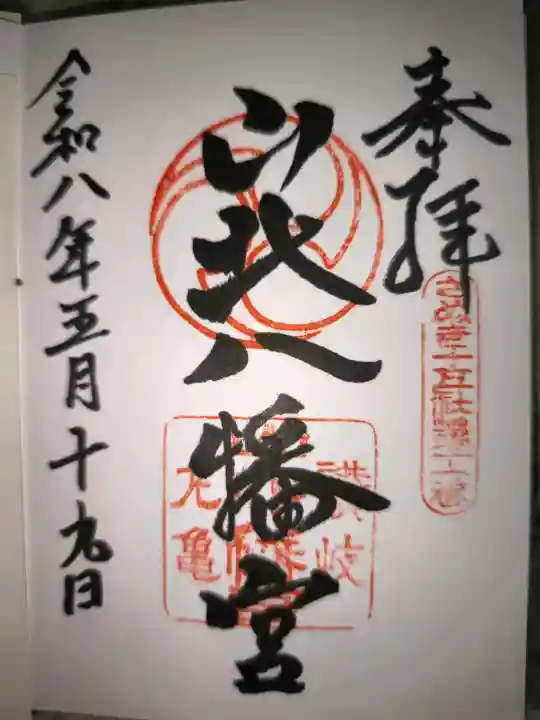 奉拝
さぬき十五社第十一番
山北八幡宮
讃岐
丸亀
令和八年五月十九日